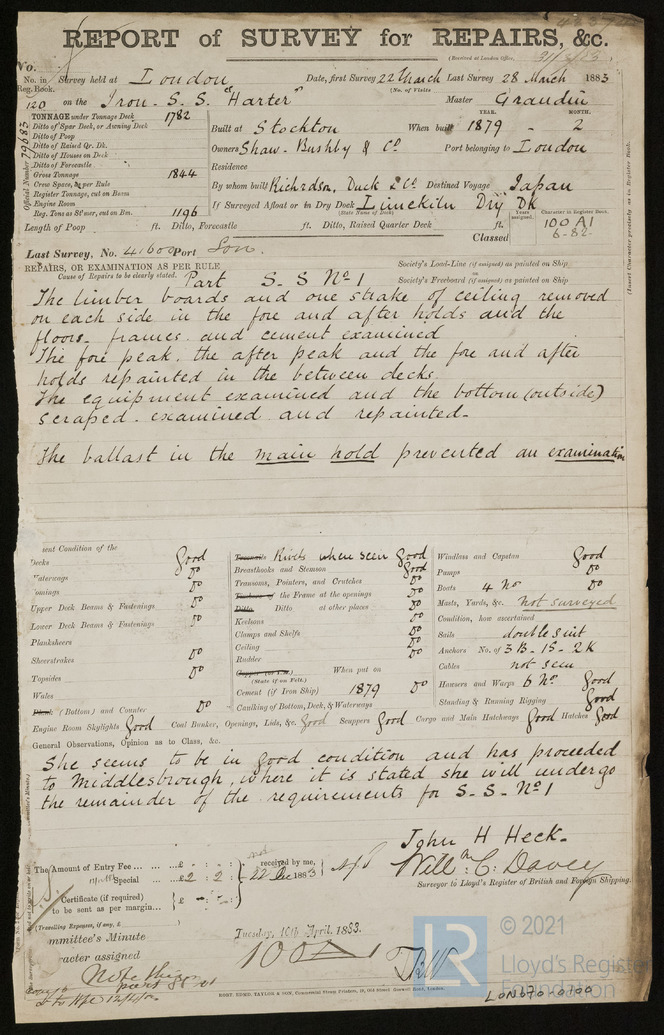 REPORT of SURVEY for REPAIRS, &c.
(Received at London Office,
No.
No. in Reg. Book. Survey held at London Date, first Survey 22 March Last Survey 28 March 1883
(No. of Visits
120 on the Iron S. S. "Harter" Master Graudin
TONNAGE under Tonnage Deck 1782
YEAR. MONTH.
Ditto of Spar Deck, or Awning Deck
Built at Stockton When built 1879 - 2
Ditto of Poop
Ditto of Raised Qr. Dk.
Owners Shaw. Bushby & Co Port belonging to London
Ditto of Houses on Deck
Ditto of Forecastle
Residence
Gross Tonnage 1844
Crew Space, as per Rule
By whom built Richrdson, Duck & Co Destined Voyage Japan
Register Tonnage, cut on Beam
Engine Room
If Surveyed Afloat or in Dry Dock Limekiln Dry Dk
(State Name of Dock)
Reg. Tons as St'mer, cut on Bm. 1196
Official Number 79683
Length of Poop ft. Ditto, Forecastle ft. Ditto, Raised Quarter Deck ft.
Years assigned. Character in Register Book.
100 A1
6-82
Classed
(Insert Character precisely as in Register Book.
Last Survey, No. 41600 Port Lon.
REPAIRS, OR EXAMINATION AS PER RULE
Society's Load-Line (if assigned) as painted on Ship
Cause of Repairs to be clearly stated. Part S. S No 1
Society's Freeboard (if assigned) as painted on Ship
The limber boards and one strake of ceiling removed
on each side in the fore and after holds and the
floors. frames. and cement examined
The fore peak, the after peak and the fore and after
holds repainted in the between decks.
The equipment examined and the bottom (outside)
scraped. examined and repainted.
The ballast in the main hold prevented an examination
ent Condition of the
Decks Good
Waterways Do
omings Do
Upper Deck Beams & Fastenings Do
Lower Deck Beams & Fastenings Do
Planksheers
Sheerstrakes Do
Topsides Do
Wales
Plank (Bottom) and Counter Do
Treenails Rivets where seen Good
Breasthooks and Stemson Good
Transoms, Pointers, and Crutches Do
of the Frame at the openings Do
Ditto Ditto at other places Do
Keelsons Do
Clamps and Shelfs Do
Ceiling Do
Rudder Do
Copper When put on
(State if on Felt.)
Cement (if Iron Ship) 1879 Do
Caulking of Bottom, Deck, & Waterways
Windlass and Capstan Good
Pumps Do
Boats 4 No Do
Masts, Yards, &c. Not surveyed
Condition, how ascertained
Sails double suit
Anchors No. of 3 B. 1 S. 2 K
Cables not seen
Hawsers and Warps 6 No Good
Standing & Running Rigging Good
Engine Room Skylights Good Coal Bunker, Openings, Lids, &c. Good Scuppers Good Cargo and Main Hatchways Good Hatches Good
General Observations, Opinion as to Class, &c.
She seems to be in good condition and has proceeded
to Middlesbrough, where it is stated she will undergo
the remainder of the requirements for S. S. No 1
John H Heck.
Will m C. Davey
Surveyor to Lloyd's Register of British and Foreign Shipping.
The Amount of Entry Fee £ : : received by me,
Special £ 2 : 2 : 22 1883
Certificate (if required) £
to be sent as per margin
(Travelling Expenses, if any, £
mmittee's Minute
Tuesday, 10th April, 1883.
racter assigned 100 A
© 2021
LR Lloyd's Register
Foundation
LON670-0100